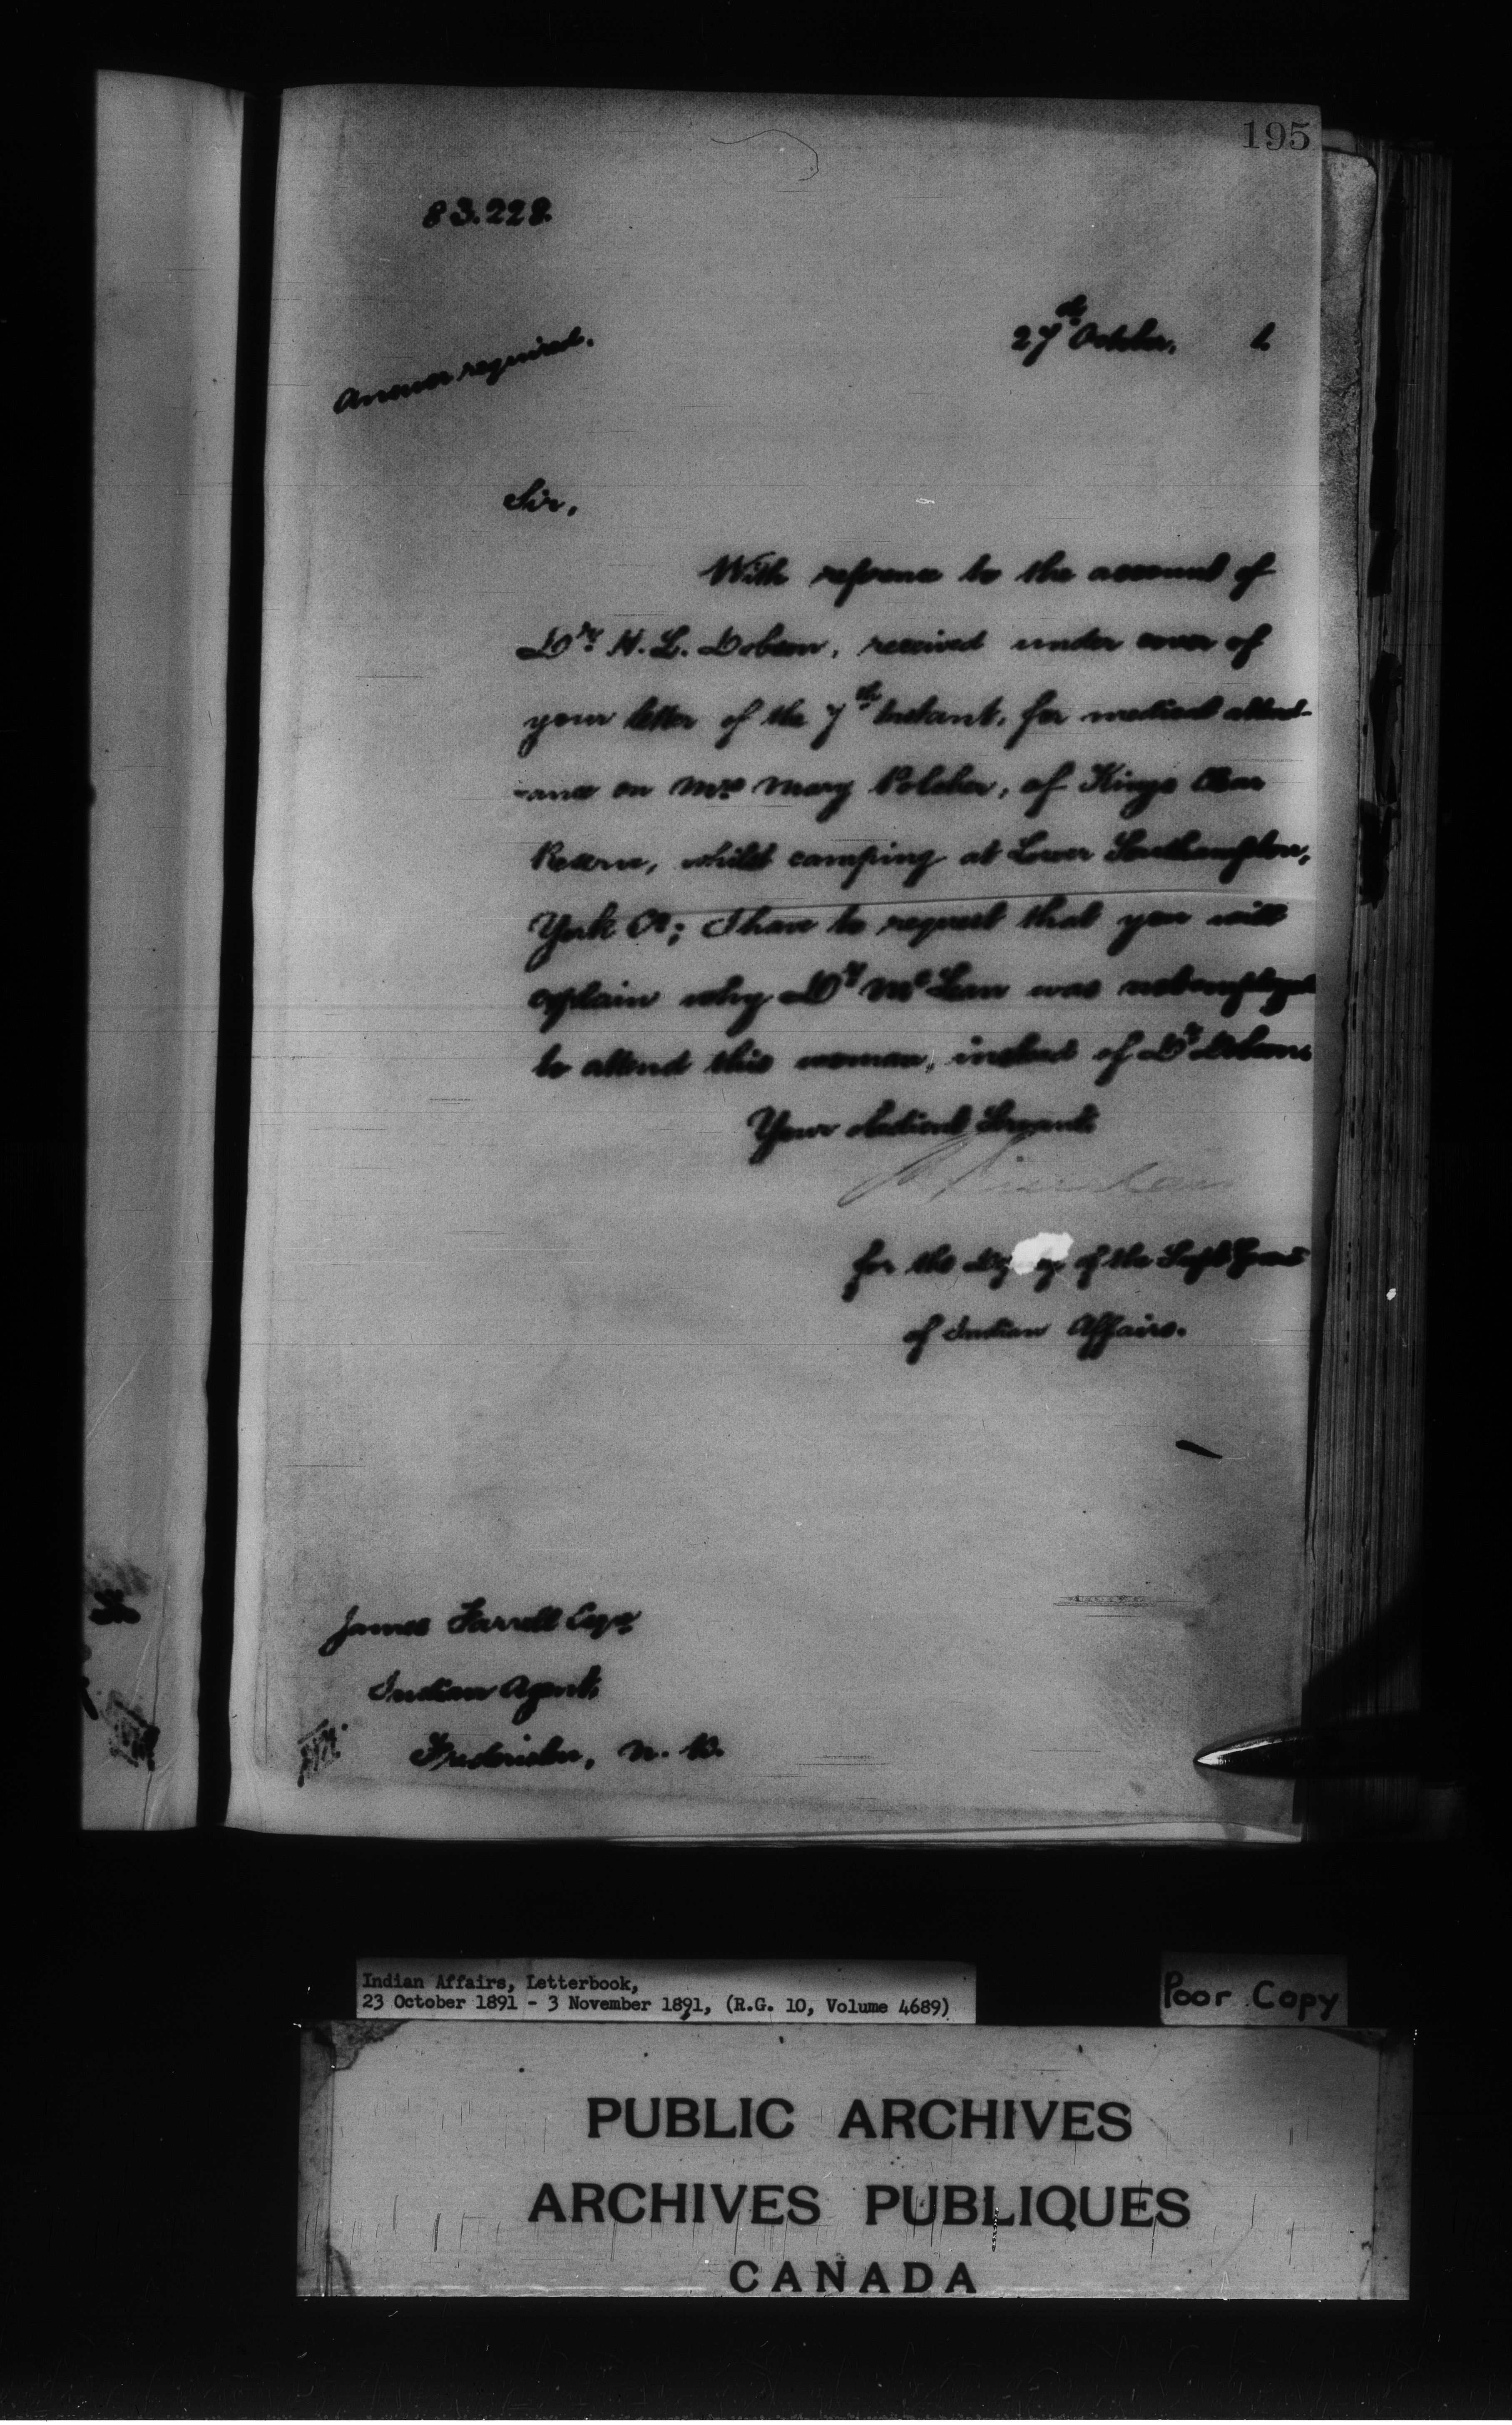 195
83.228.
27th October, 1.
Answer required.
Sir,
With refrence to the account of
Dr. H. L. Dobson, received under cover of
your letter of the 7th Instant, for medical attend-
-ance on Mrs Mary Polcher, of Kings Clear
Reserve, whilst camping at Lower Southampton,
York Co; I have to request that you will
explain why Dr. McLean was not employed
to attend this woman, instead of Dr. Dobson.
Your obedient Servant,
for the Dy of the Supt Genl
of Indian Affairs.
James Farrell Esqr.
Indian Agent,
Fredericton, N. B.
Indian Affairs, Letterbook,
23 October 1891 - 3 November 1891, (R.G. 10, Volume 4689)
Poor Copy
PUBLIC ARCHIVES
ARCHIVES PUBLIQUES
CANADA